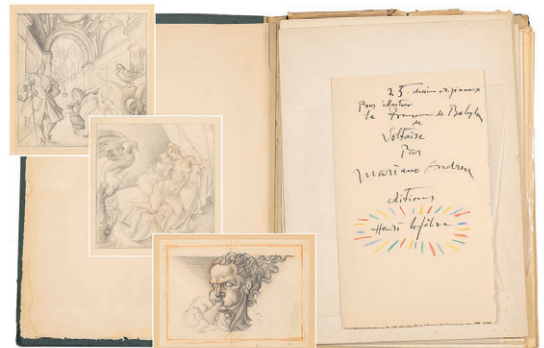 25 dessins originaux
Pour illustrer
la Princesse de Babylone
de
Voltaire
Par
Mariano Andreu
editions
Henri Lefèbvre